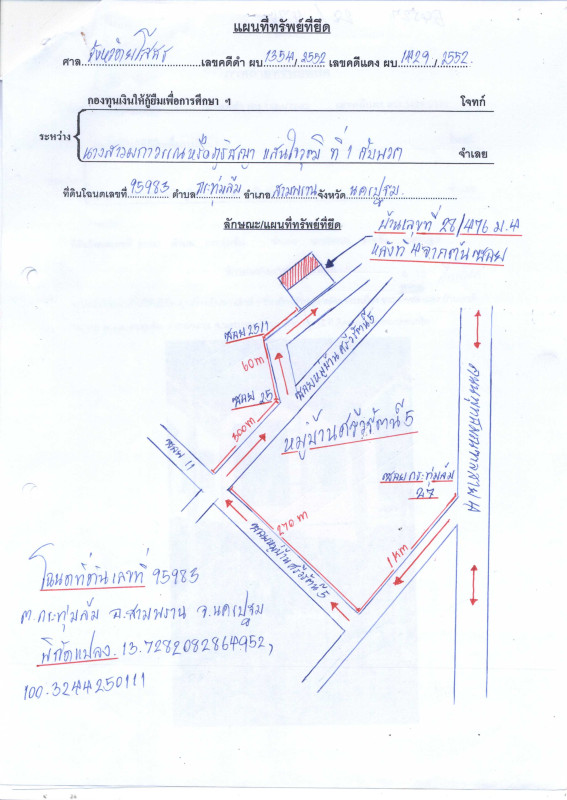 แผนที่ทรัพย์ที่ยึด
ศาล จังหวัดยโสธร เลขคดีดำ ผบ 1354 / 2552 เลขคดีแดง ผบ 1429 / 2552
กองทุนเงินให้กู้ยืมเพื่อการศึกษา ฯ โจทก์
ระหว่าง
นางสาวผกาวรรณหรือภูริสญา แสนใจวุฒิ ที่ 1 กับพวก จำเลย
ที่ดินโฉนดเลขที่ 95983 ตำบล กระทุ่มล้ม อำเภอ สามพราน จังหวัด นครปฐม
ลักษณะ/แผนที่ทรัพย์ที่ยึด
บ้านเลขที่ 28/476 ม.4
หลังที่ 4 จากต้นซอย
ซอย 25/1
60 m
ซอยหมู่บ้านศรีวรัตน์ 5
ซอย 25
300 m
หมู่บ้านศรีวรัตน์ 5
ซอย 11
ถนนพุทธมณฑลสาย 4
ซอยกระทุ่มล้ม
27
270 m
ซอยหมู่บ้านศรีวรัตน์ 5
1 km
โฉนดที่ดินเลขที่ 95983
ต.กระทุ่มล้ม อ.สามพราน จ.นครปฐม
พิกัดแปลง. 13.7282082864952,
100.3244250111